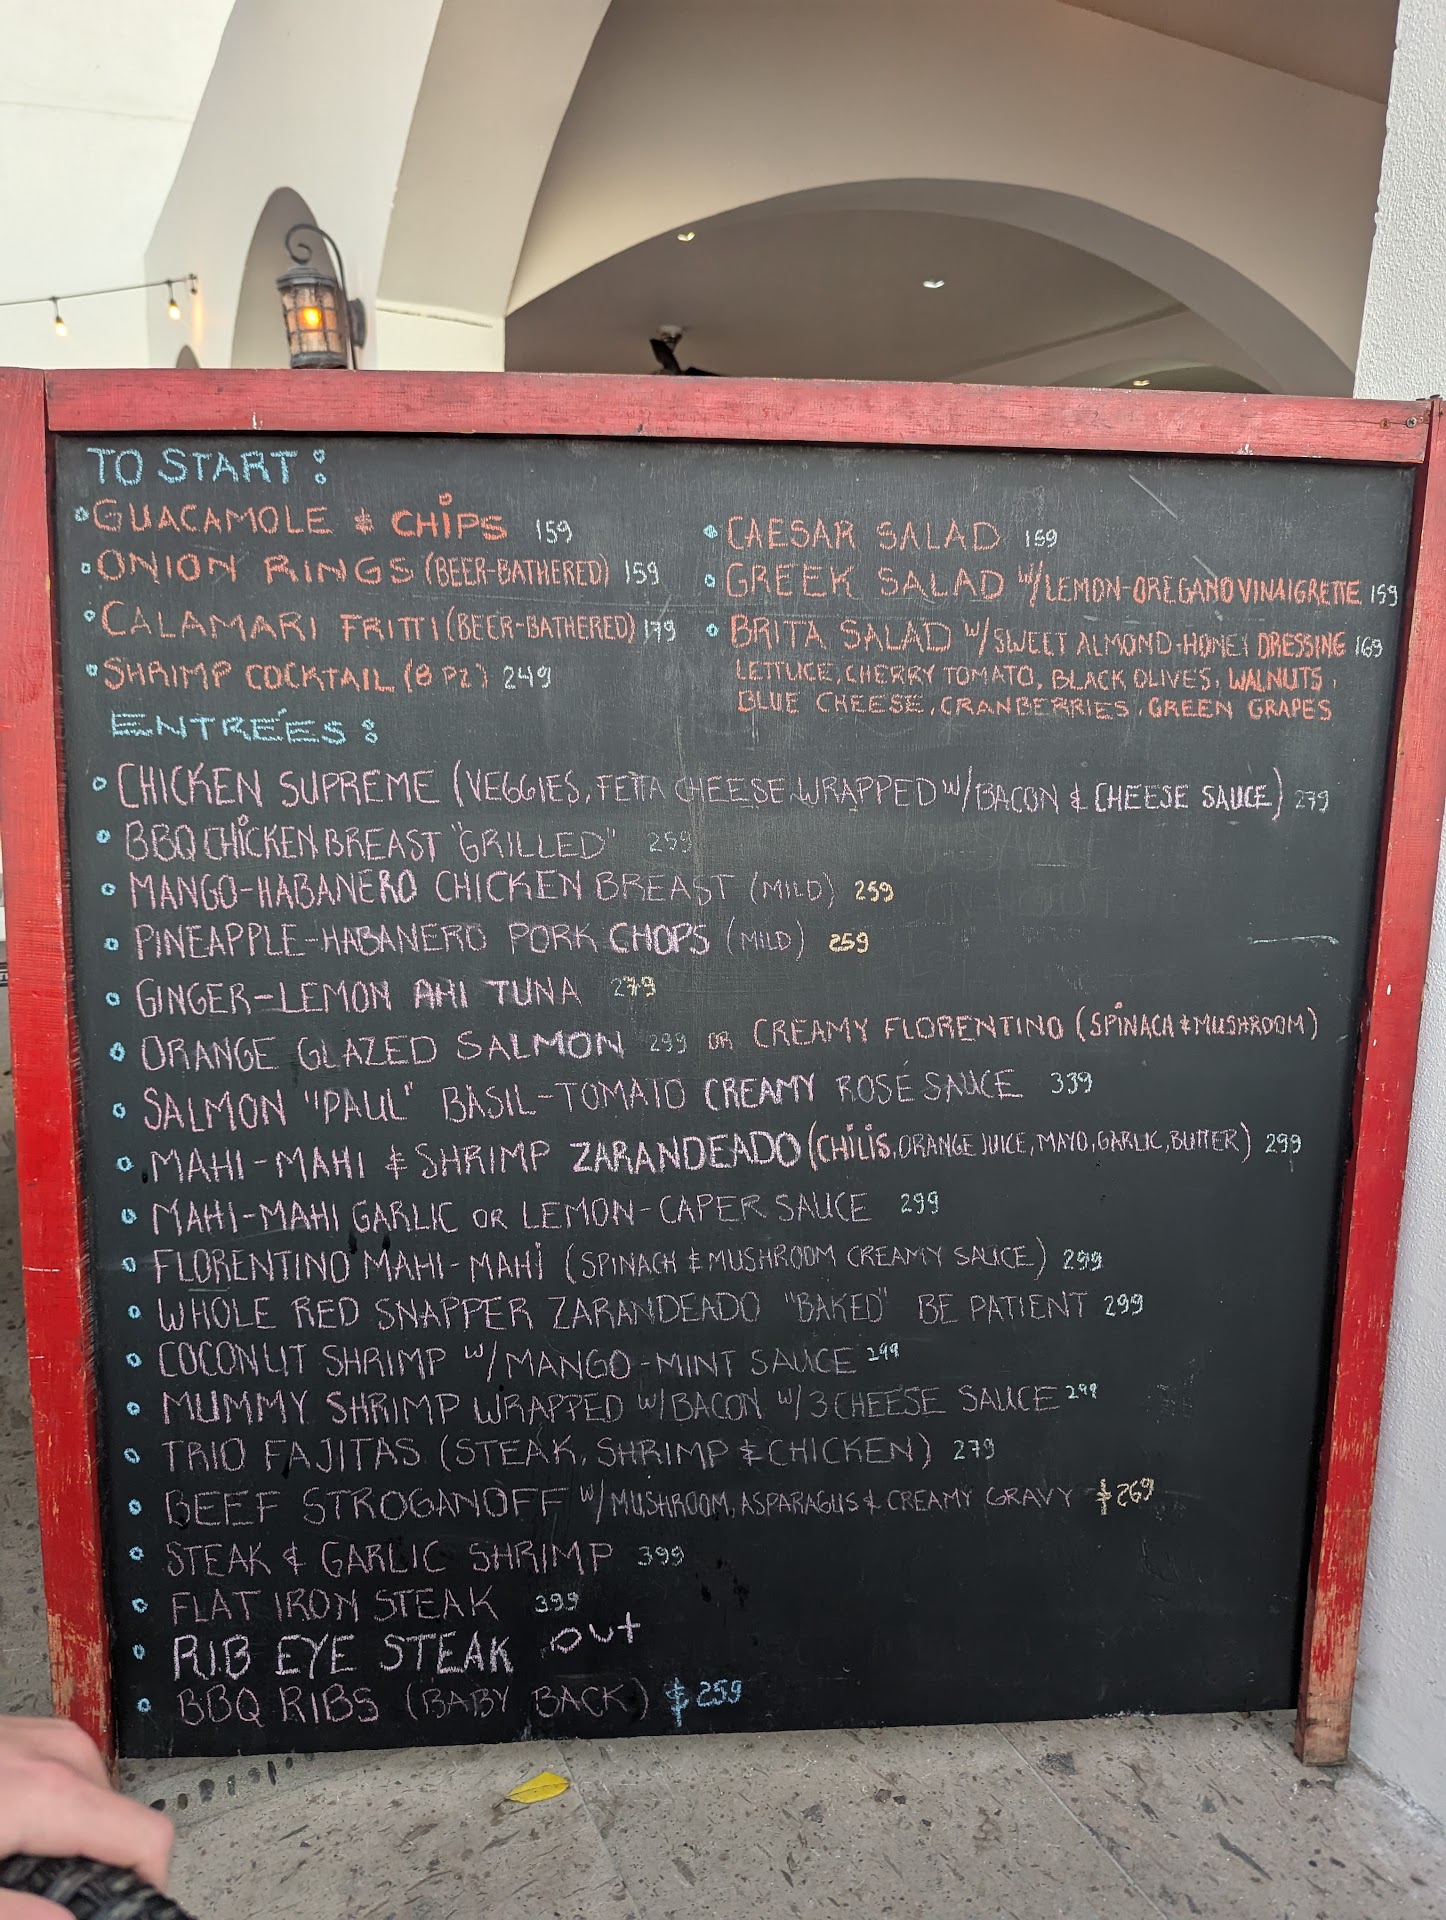 TO START:
GUACAMOLE & CHIPS 159
ONION RINGS (BEER-BATHERED) 159
CALAMARI FRITTI (BEER-BATHERED) 179
SHRIMP COCKTAIL (8 PZ) 249
CAESAR SALAD 159
GREEK SALAD W/LEMON-OREGANO VINAIGRETTE 159
BRITA SALAD W/SWEET ALMOND-HONEY DRESSING 169
LETTUCE, CHERRY TOMATO, BLACK OLIVES, WALNUTS,
BLUE CHEESE, CRANBERRIES, GREEN GRAPES
ENTRÉES:
CHICKEN SUPREME (VEGGIES, FETTA CHEESE, WRAPPED W/BACON & CHEESE SAUCE) 279
BBQ CHICKEN BREAST "GRILLED" 259
MANGO-HABANERO CHICKEN BREAST (MILD) 259
PINEAPPLE-HABANERO PORK CHOPS (MILD) 259
GINGER-LEMON AHI TUNA 279
ORANGE GLAZED SALMON 299 OR CREAMY FLORENTINO (SPINACH & MUSHROOM)
SALMON "PAUL" BASIL-TOMATO CREAMY ROSÉ SAUCE 339
MAHI-MAHI & SHRIMP ZARANDEADO (CHILIS, ORANGE JUICE, MAYO, GARLIC, BUTTER) 299
MAHI-MAHI GARLIC OR LEMON-CAPER SAUCE 299
FLORENTINO MAHI-MAHI (SPINACH & MUSHROOM CREAMY SAUCE) 299
WHOLE RED SNAPPER ZARANDEADO "BAKED" BE PATIENT 299
COCONUT SHRIMP W/MANGO-MINT SAUCE 299
MUMMY SHRIMP WRAPPED W/BACON W/3 CHEESE SAUCE 299
TRIO FAJITAS (STEAK, SHRIMP & CHICKEN) 279
BEEF STROGANOFF W/MUSHROOM, ASPARAGUS & CREAMY GRAVY $269
STEAK & GARLIC SHRIMP 399
FLAT IRON STEAK 399
RIB EYE STEAK out
BBQ RIBS (BABY BACK) $259